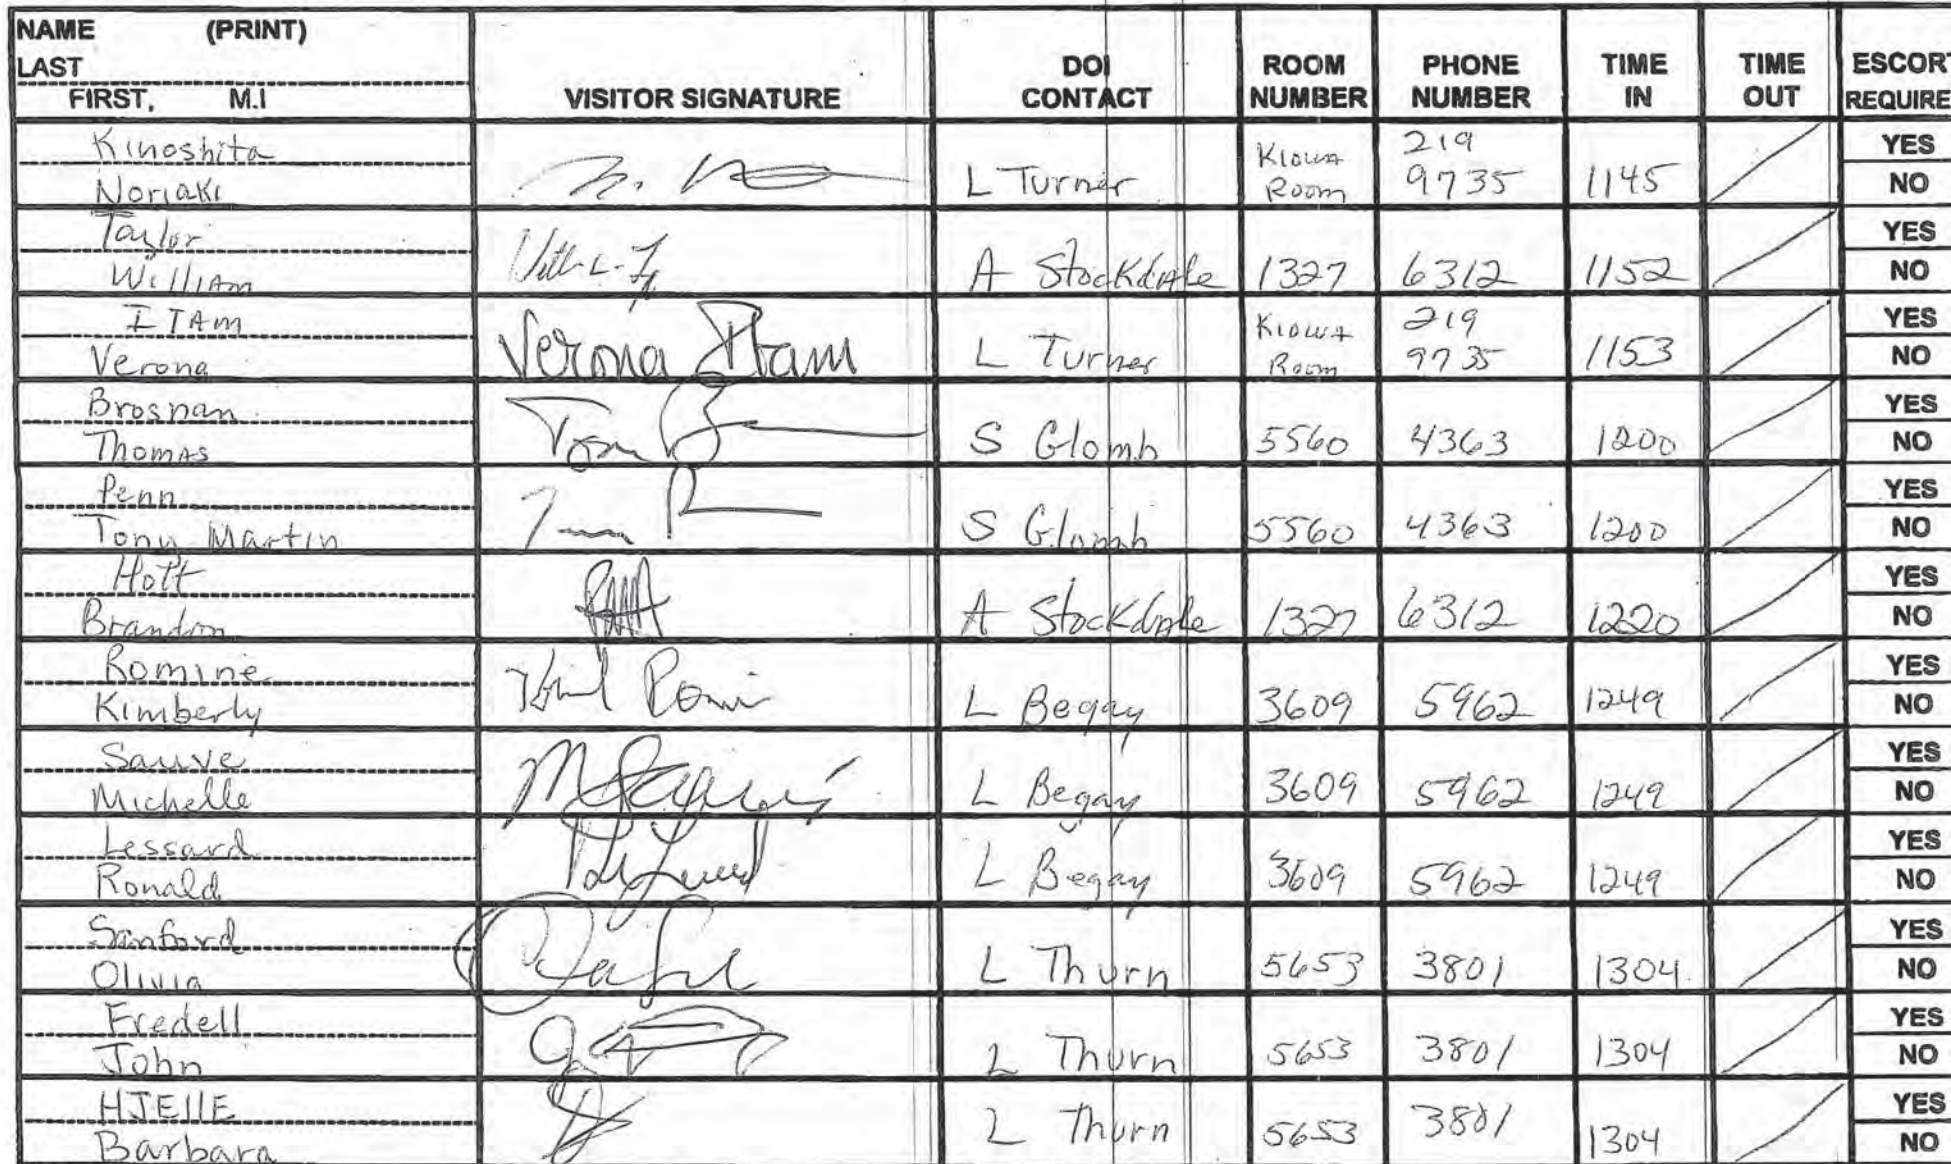 NAME (PRINT)
LAST
FIRST, M.I
VISITOR SIGNATURE
DOI CONTACT
ROOM NUMBER
PHONE NUMBER
TIME IN
TIME OUT
ESCORT REQUIRE
Kinoshita
Noriaki
L Turner Kiowa Room 219 9735 1145
YES
NO
Taylor
William
A Stockdale 1327 6312 1152
YES
NO
ITAm
Verona
Verona Itam
L Turner Kiowa Room 219 9735 1153
YES
NO
Brosnan
Thomas
Tom
S Glomb 5560 4363 1200
YES
NO
Penn
Tony Martin
S Glomb 5560 4363 1200
YES
NO
Hott
Brandon
A Stockdale 1327 6312 1220
YES
NO
Romine
Kimberly
L Begay 3609 5962 1249
YES
NO
Sauve
Michelle
L Begay 3609 5962 1249
YES
NO
Lessard
Ronald
L Begay 3609 5962 1249
YES
NO
Sanford
Olivia
L Thurn 5653 3801 1304
YES
NO
Fredell
John
L Thurn 5653 3801 1304
YES
NO
HJEllE
Barbara
L Thurn 5653 3801 1304
YES
NO